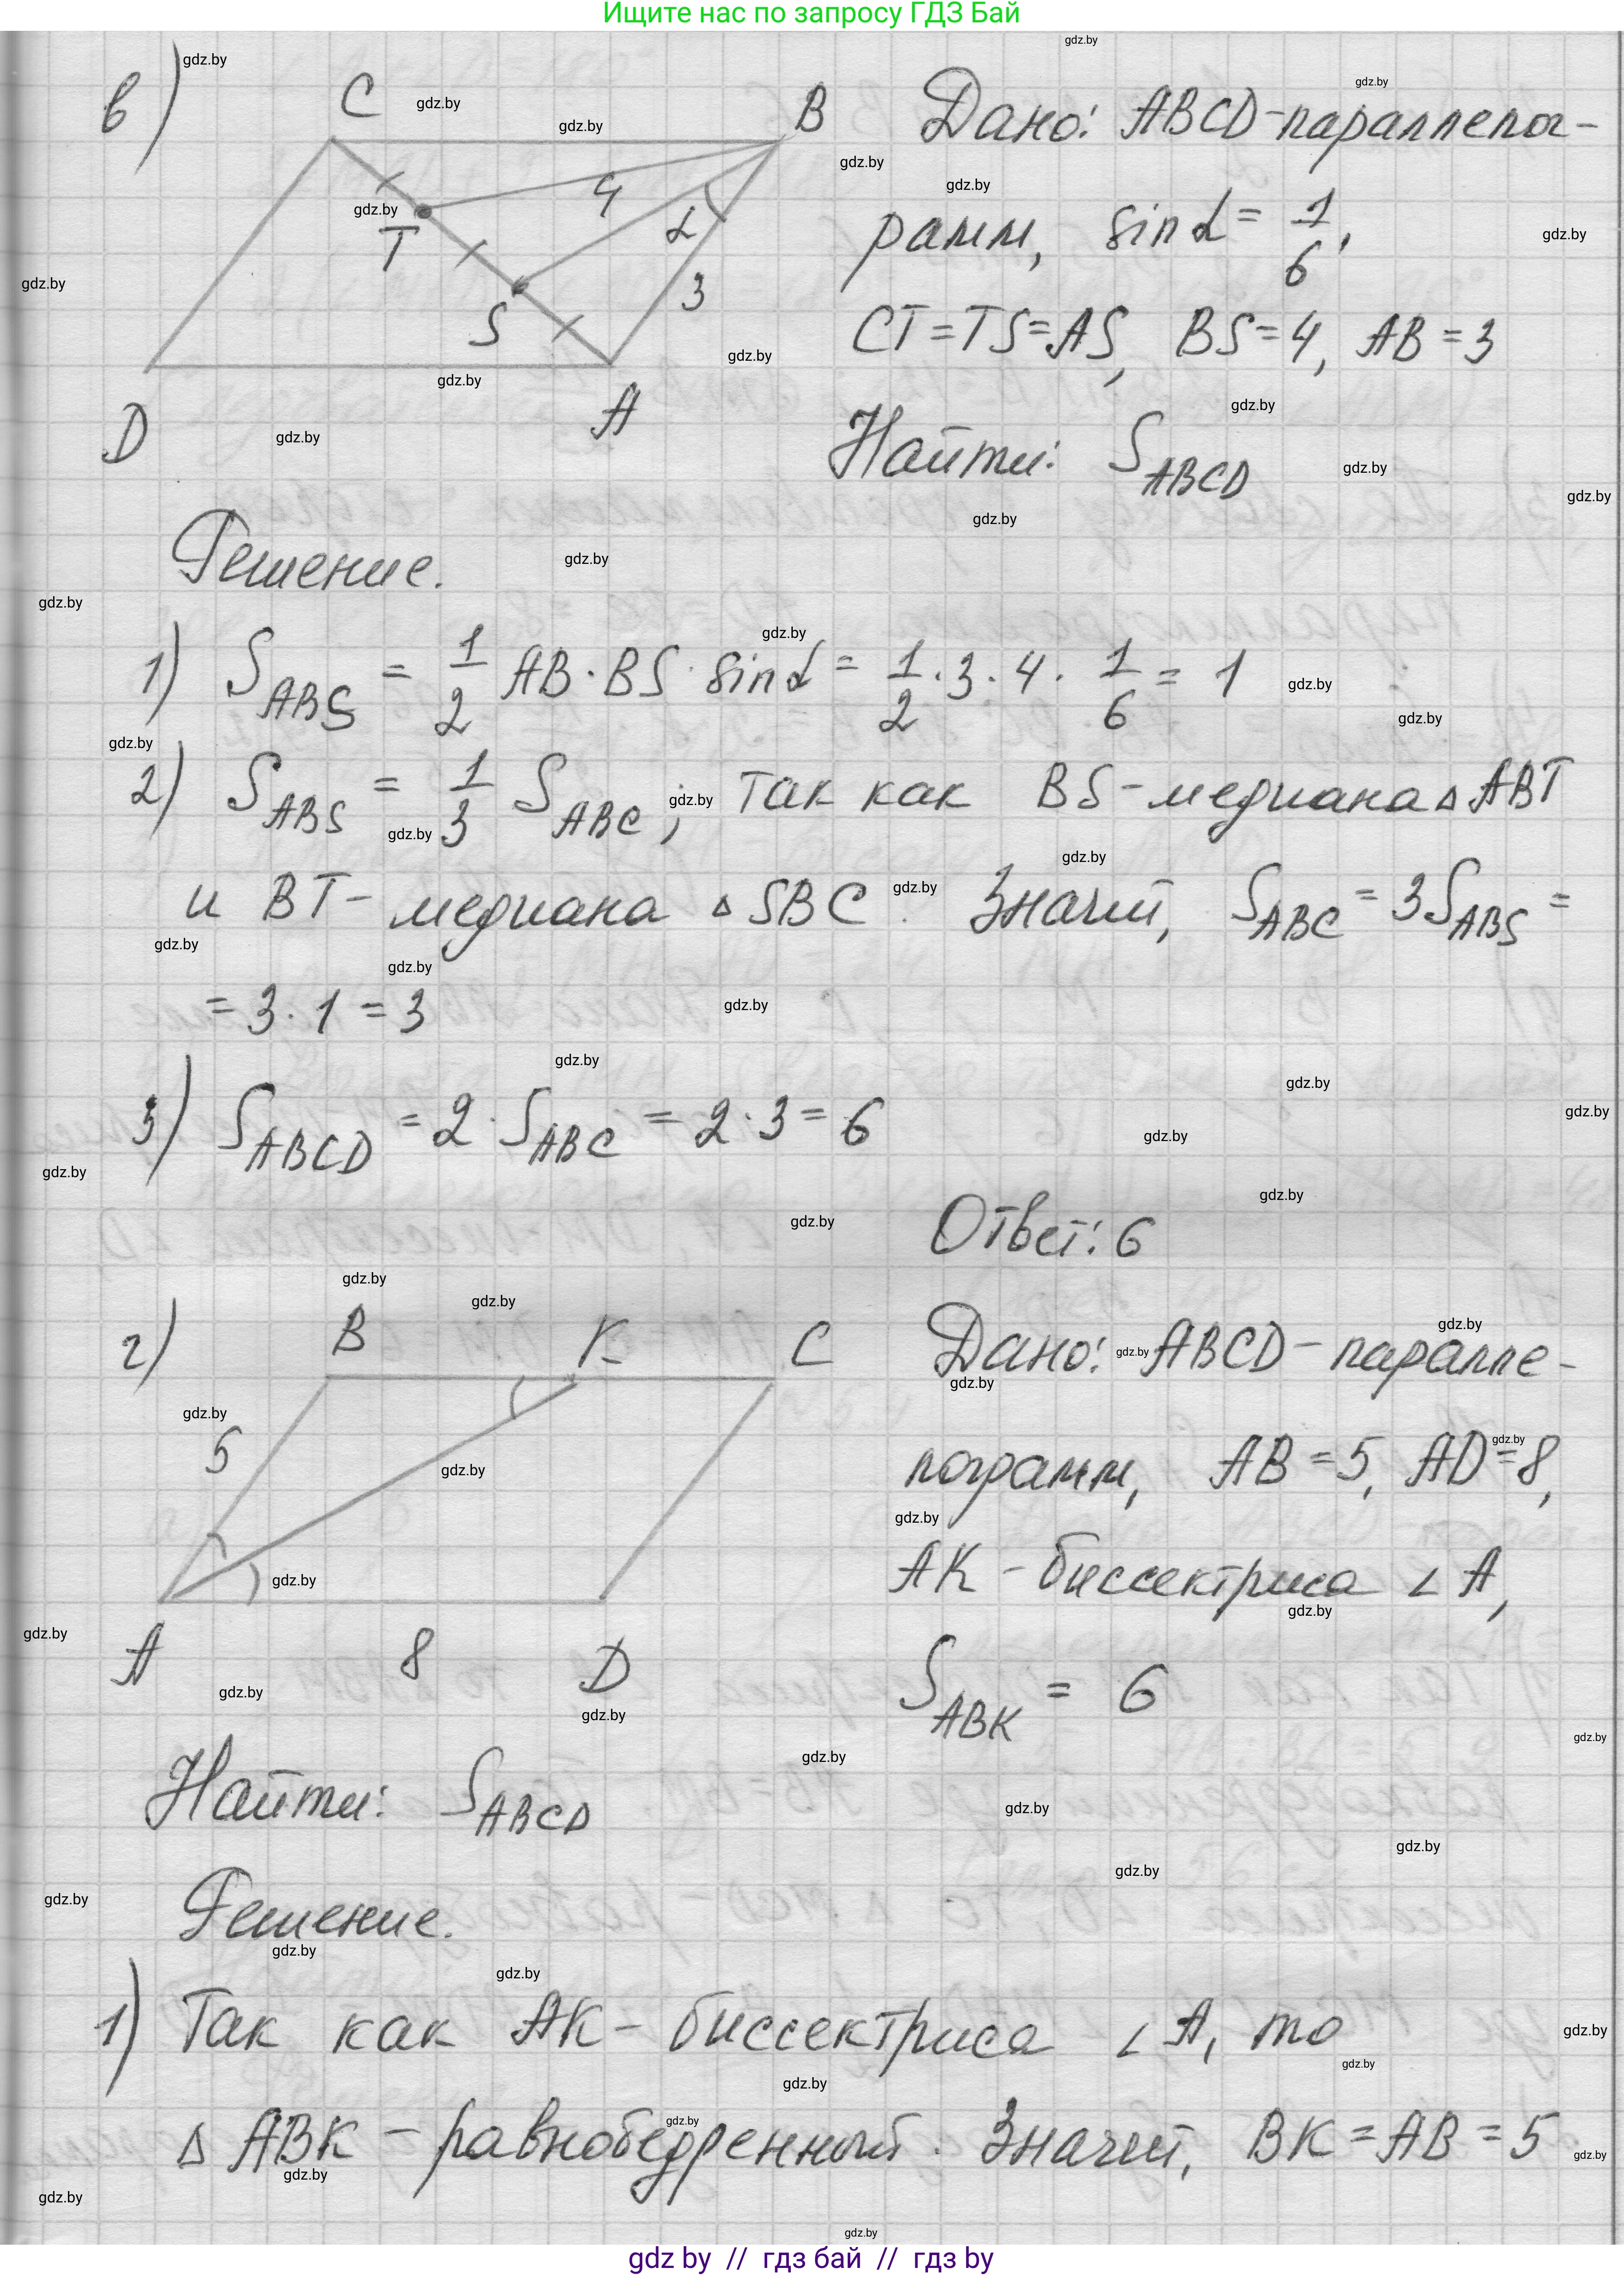 Ищите нас по запросу ГДЗ Бай
в) C B Дано: ABCD-параллелог-
рамм, sin α = 1/6,
T 4 α 3 S CT = TS = AS, BS = 4, AB = 3
D A Найти: S_ABCD
Решение.
1) S_ABS = 1/2 AB · BS · sin α = 1/2 · 3 · 4 · 1/6 = 1
2) S_ABS = 1/3 S_ABC; так как BS-медиана △ ABT
и BT- медиана △ SBC. Значит, S_ABC = 3S_ABS =
= 3 · 1 = 3
3) S_ABCD = 2 · S_ABC = 2 · 3 = 6
Ответ: 6
г) B K C Дано: ABCD - паралле-
5 лограмм, AB = 5, AD = 8,
AK - биссектриса ∠ A,
A 8 D S_ABK = 6
Найти: S_ABCD
Решение.
1) Так как AK - биссектриса ∠ A, то
△ ABK - равнобедренный. Значит, BK = AB = 5
gdz.by
gdz by // гдз бай // гдз by